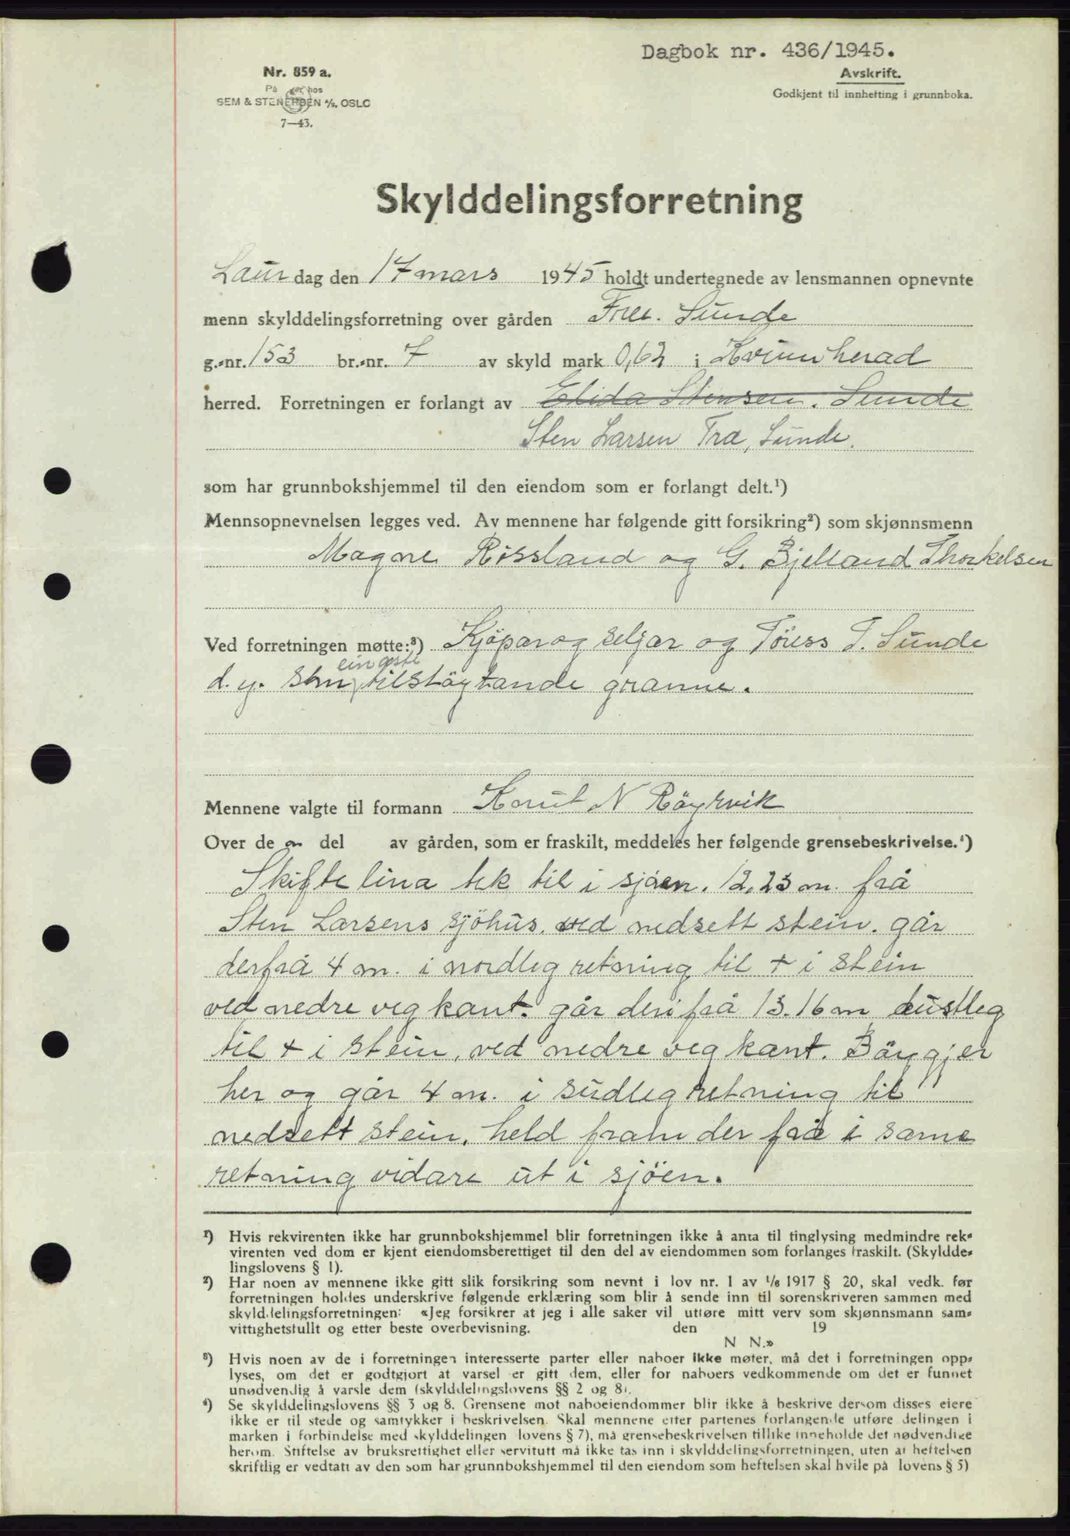 Dagbok nr. 436/1945.
Nr. 859 a.
Avskrift.
På hos
Godkjent til innhefting i grunnboka.
SEM & STENERSEN A/S, OSLO
7—43.
Skylddelingsforretning
Laurdag den 17 mars 1945 holdt undertegnede av lensmannen opnevnte
menn skylddelingsforretning over gården Sunde
g.-nr. 153 br.-nr. 7 av skyld mark 0,62 i Kvinnherad
herred. Forretningen er forlangt av Elida Stensen. Sunde
Sten Larsen Træ, Sunde.
som har grunnbokshjemmel til den eiendom som er forlangt delt.¹)
Mennsopnevnelsen legges ved. Av mennene har følgende gitt forsikring²) som skjønnsmenn
Magne Røssland og G. Bjelland Thorkelsen
Ved forretningen møtte:³) Kjöpar og seljar og Töress T. Sunde
eingaste
d. y. som tilstöytande granne.
Mennene valgte til formann Knut N Röyrvik
Over de n del av gården, som er fraskilt, meddeles her følgende grensebeskrivelse.⁴)
Skiftelina tek til i sjöen. 12,25 m. frå
Sten Larsens sjöhus. ved nedsett stein. går
derfrå 4 m. i nordleg retning til + i stein
ved nedre vegkant. går derifrå 13.16 m austleg
til + i stein, ved nedre vegkant. Böygjer
her og går 4 m. i sudleg retning til
nedsett stein, held fram der frå i same
retning vidare ut i sjöen.
¹) Hvis rekvirenten ikke har grunnbokshjemmel blir forretningen ikke å anta til tinglysing medmindre rek-
virenten ved dom er kjent eiendomsberettiget til den del av eiendommen som forlanges fraskilt. (Skyldde-
lingslovens § 1).
²) Har noen av mennene ikke gitt slik forsikring som nevnt i lov nr. 1 av 1/6 1917 § 20, skal vedk. før
forretningen holdes underskrive følgende erklæring som blir å sende inn til sorenskriveren sammen med
skylddelingsforretningen: «Jeg forsikrer at jeg i alle saker vil utføre mitt verv som skjønnsmann sam-
vittighetsfullt og etter beste overbevisning. den 19
N N.»
³) Hvis noen av de i forretningen interesserte parter eller naboer ikke møter, må det i forretningen opp-
lyses, om det er godtgjort at varsel er gitt dem, eller for naboers vedkommende om det er funnet
unødvendig å varsle dem (skylddelingslovens §§ 2 og 8).
⁴) Se skylddelingslovens §§ 3 og 8. Grensene mot naboeiendommer blir ikke å beskrive dersom disses eiere
ikke er til stede og samtykker i beskrivelsen. Skal mennene etter partenes forlangende utføre delingen i
marken i forbindelse med skylddelingen (lovens § 7), må grensebeskrivelsen tillike inneholde det nødvendige
herom. Stiftelse av bruksrettighet eller servitutt må ikke tas inn i skylddelingsforretningen, uten at heftelsen
skriftlig er vedtatt av den som har grunnbokshjemmel til den eiendom som heftelsen skal hvile på (lovens § 5)